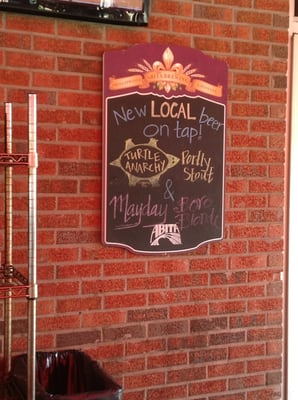 New LOCAL beer
on tap!
TURTLE
ANARCHY
Portly
Stout
&
Mayday
Boro
Blonde
ABITA